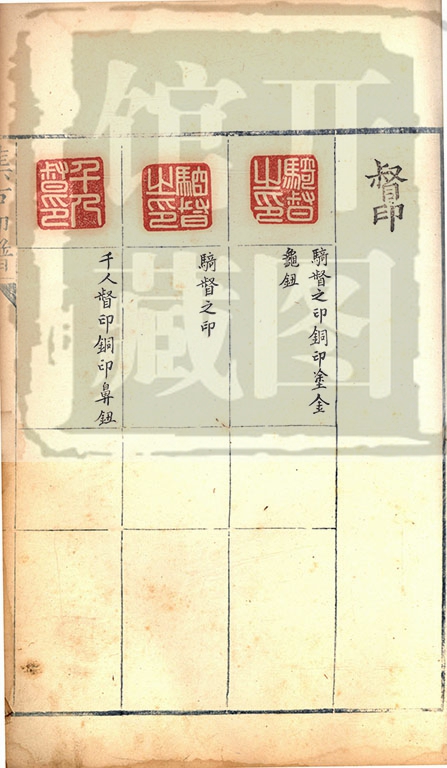 督印
騎督之印
騎督之印銅印塗金
龜鈕
騎督之印
騎督之印
千人督印
千人督印銅印鼻鈕
馆
藏图